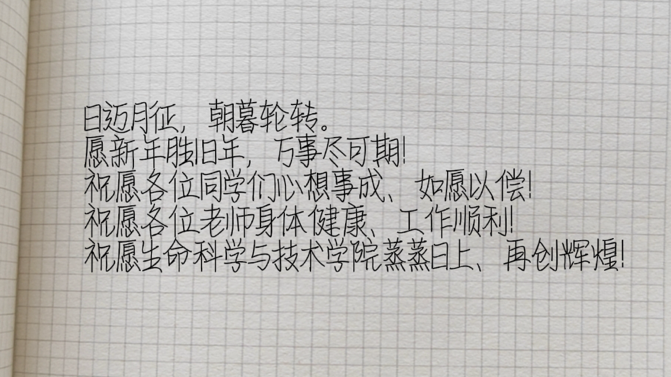 日迈月征，朝暮轮转。
愿新年胜旧年，万事尽可期！
祝愿各位同学们心想事成、如愿以偿！
祝愿各位老师身体健康、工作顺利！
祝愿生命科学与技术学院蒸蒸日上、再创辉煌！